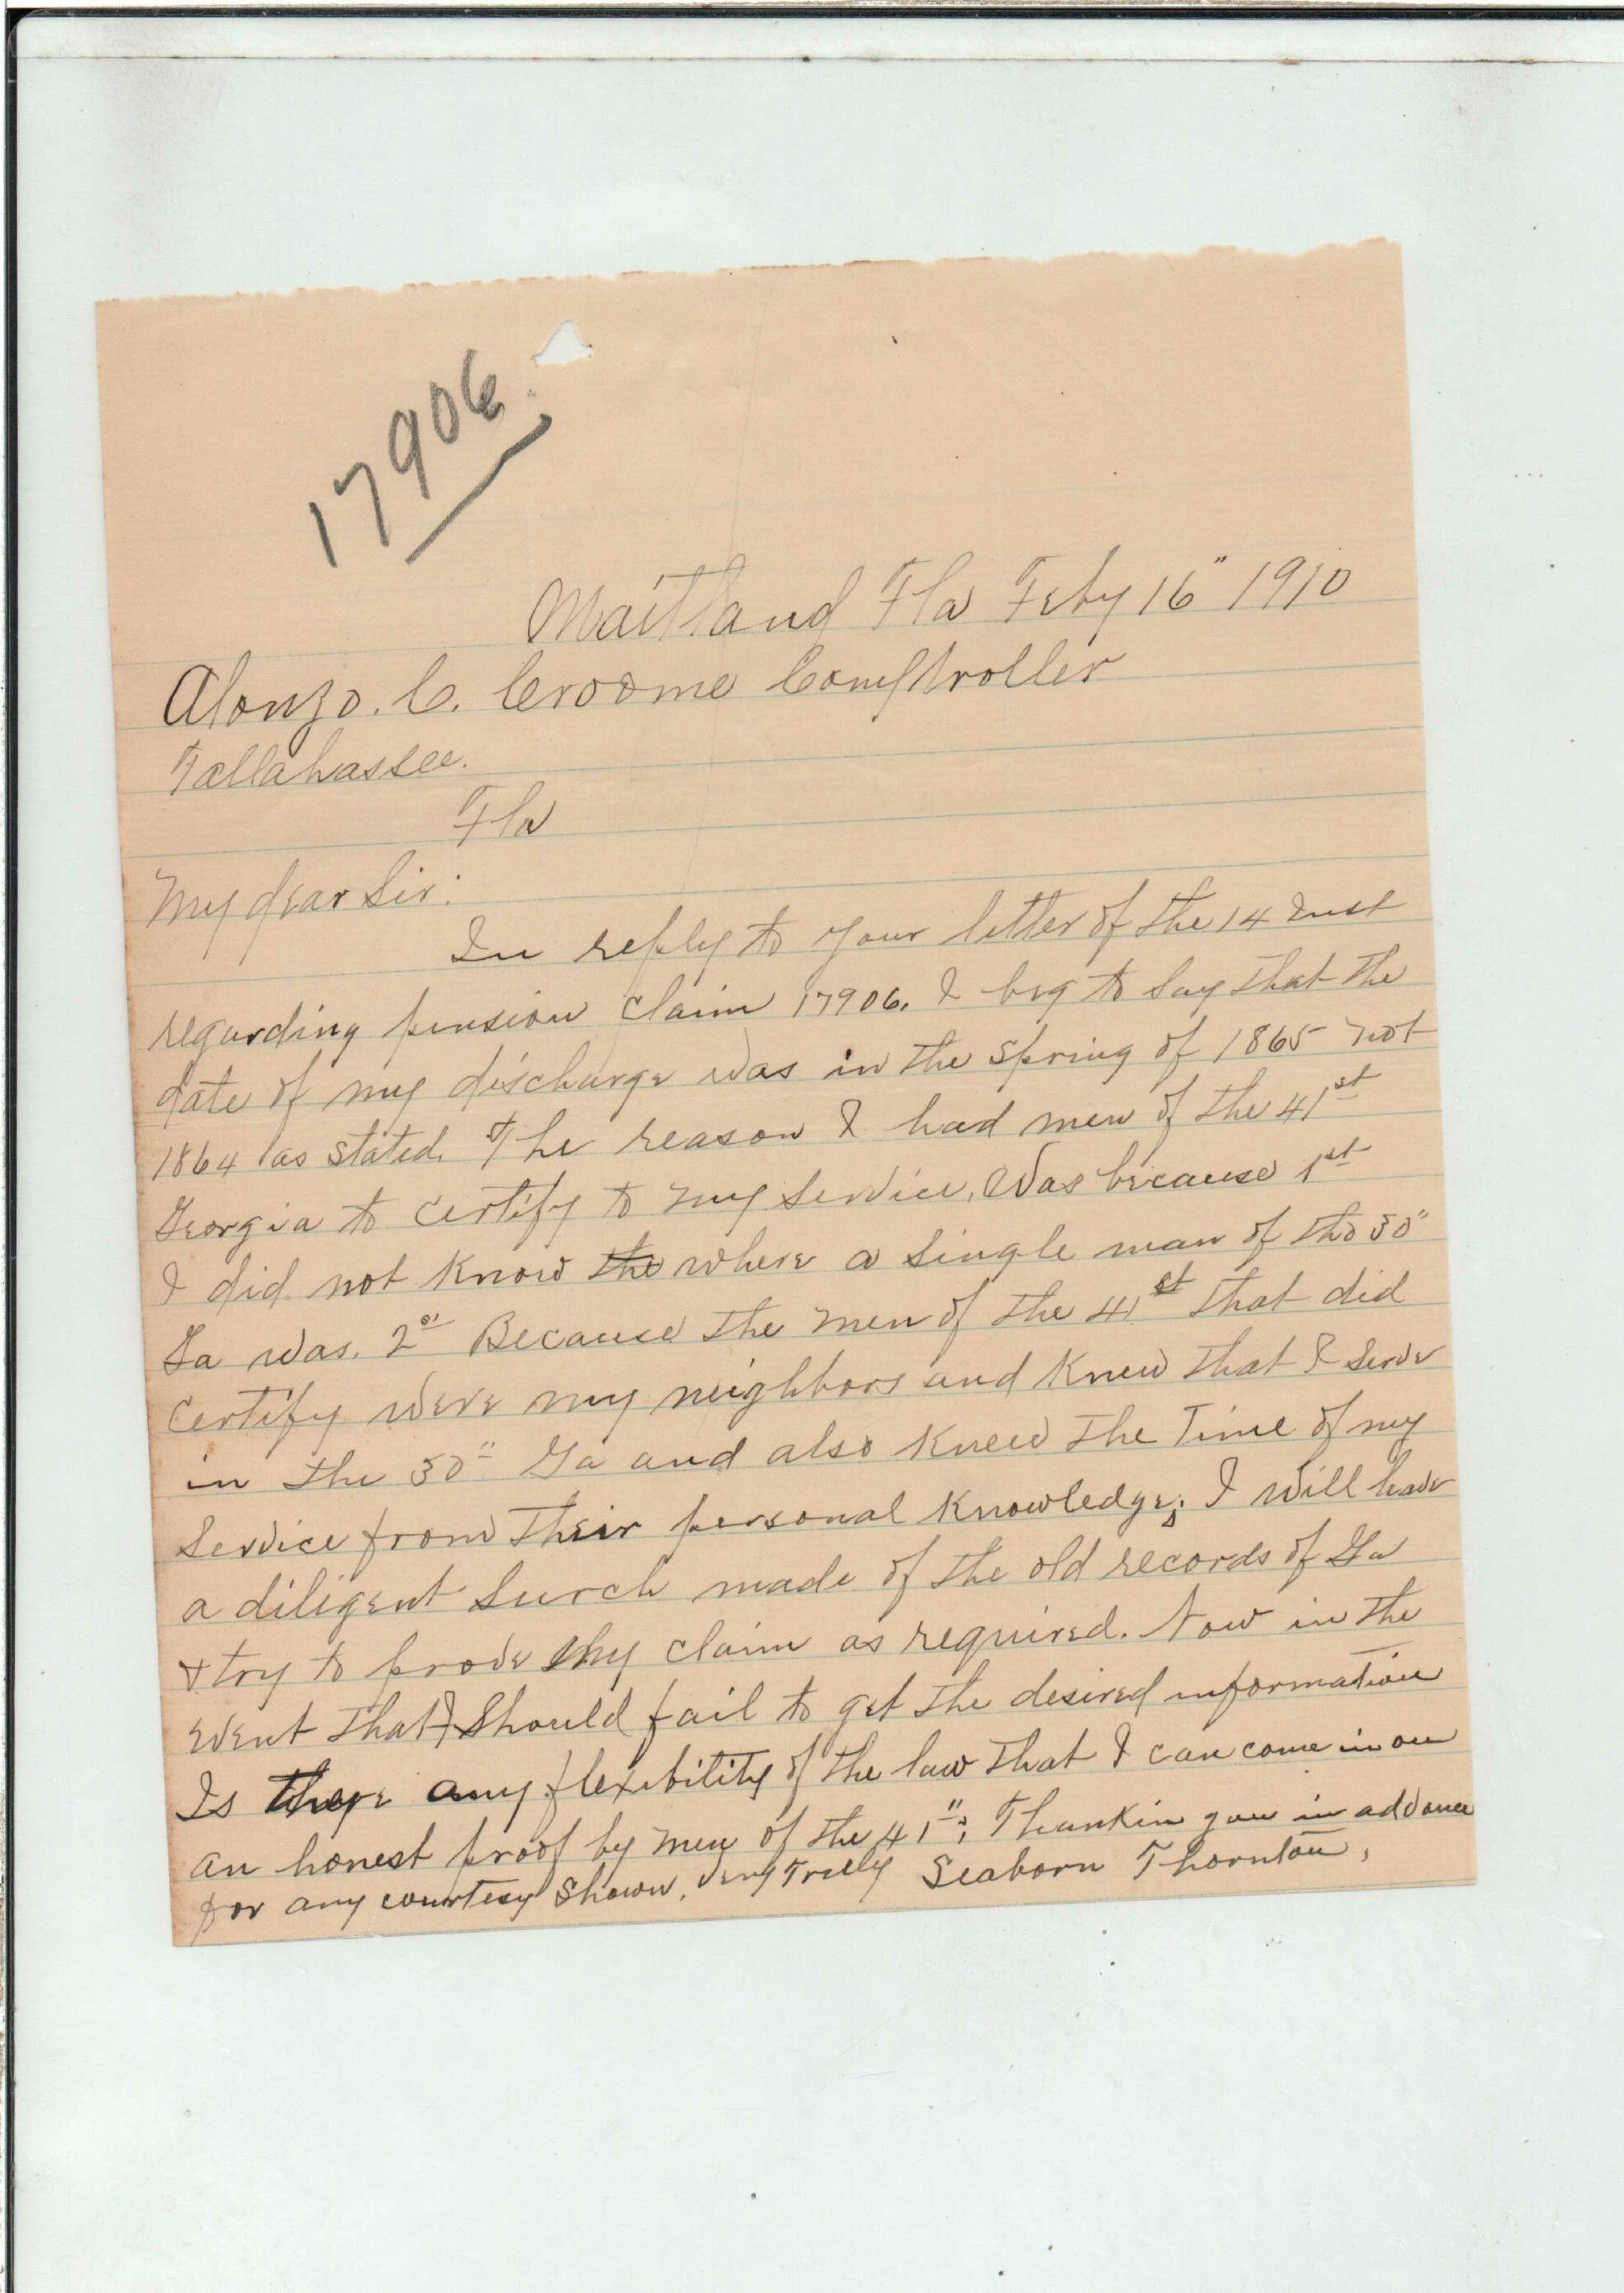 17906.
Maitland Fla Feby 16" 1910
Alonzo. C. Croome Comptroller
Tallahassee.
Fla
My dear Sir:
In reply to your letter of the 14 Inst
regarding pension claim 17906. I beg to say that the
date of my discharge was in the Spring of 1865 not
1864 as stated. The reason I had men of the 41st
Georgia to certify to my service, Was because 1st
I did not know the where a single man of the 50"
Ga was. 2" Because the men of the 41st that did
certify were my neighbors and knew that I Serve
in the 50" Ga and also knew the Time of my
Service from their personal knowledge; I will have
a diligent Surch made of the old records of Ga
& try to prove my claim as required. Now in the
event that I Should fail to get the desired information
Is there any flexibility of the law that I can come in on
an honest proof by men of the 41"; Thankin you in advance
for any courtesy Shown, very Trully Seaborn Thornton,